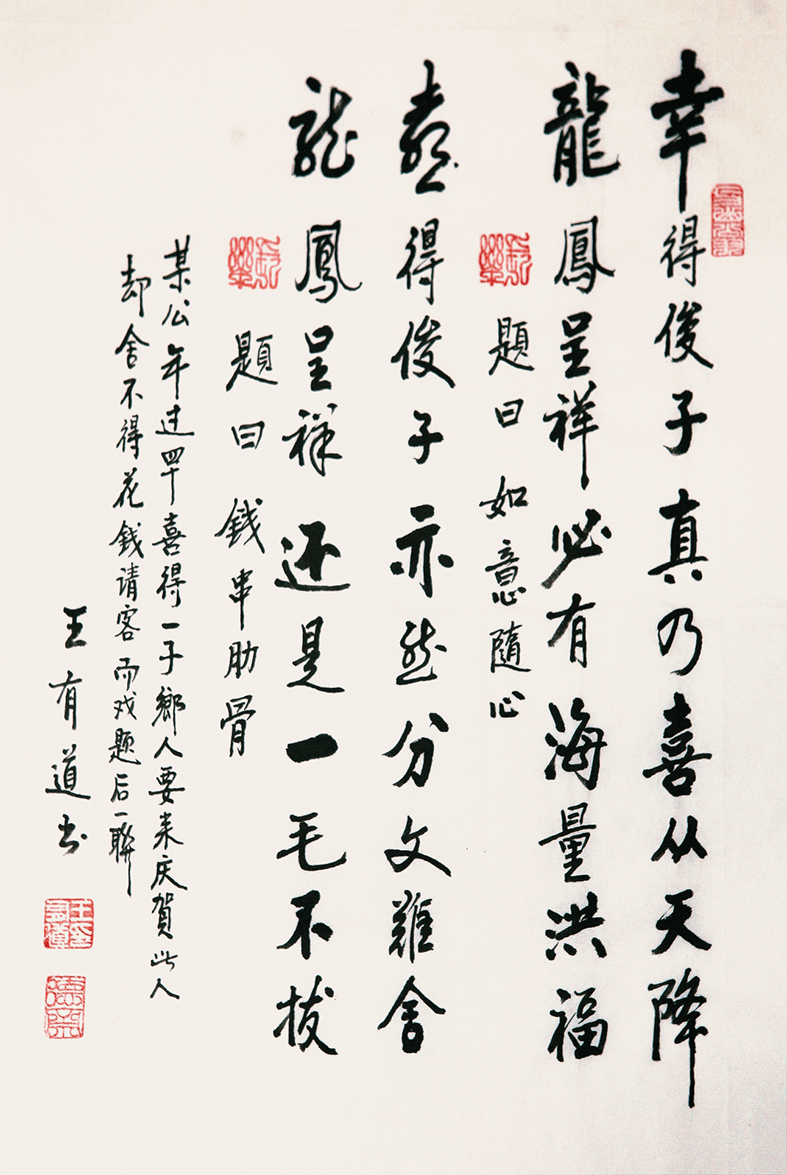 幸得俊子真乃喜从天降
龍鳳呈祥必有海量洪福
題曰如意隨心
得俊子亦然分文難舍
龍鳳呈祥还是一毛不拔
題曰钱串肋骨
某公年过四十喜得一子鄉人要来庆賀此人
却舍不得花钱请客而戏题后一聯
王有道书